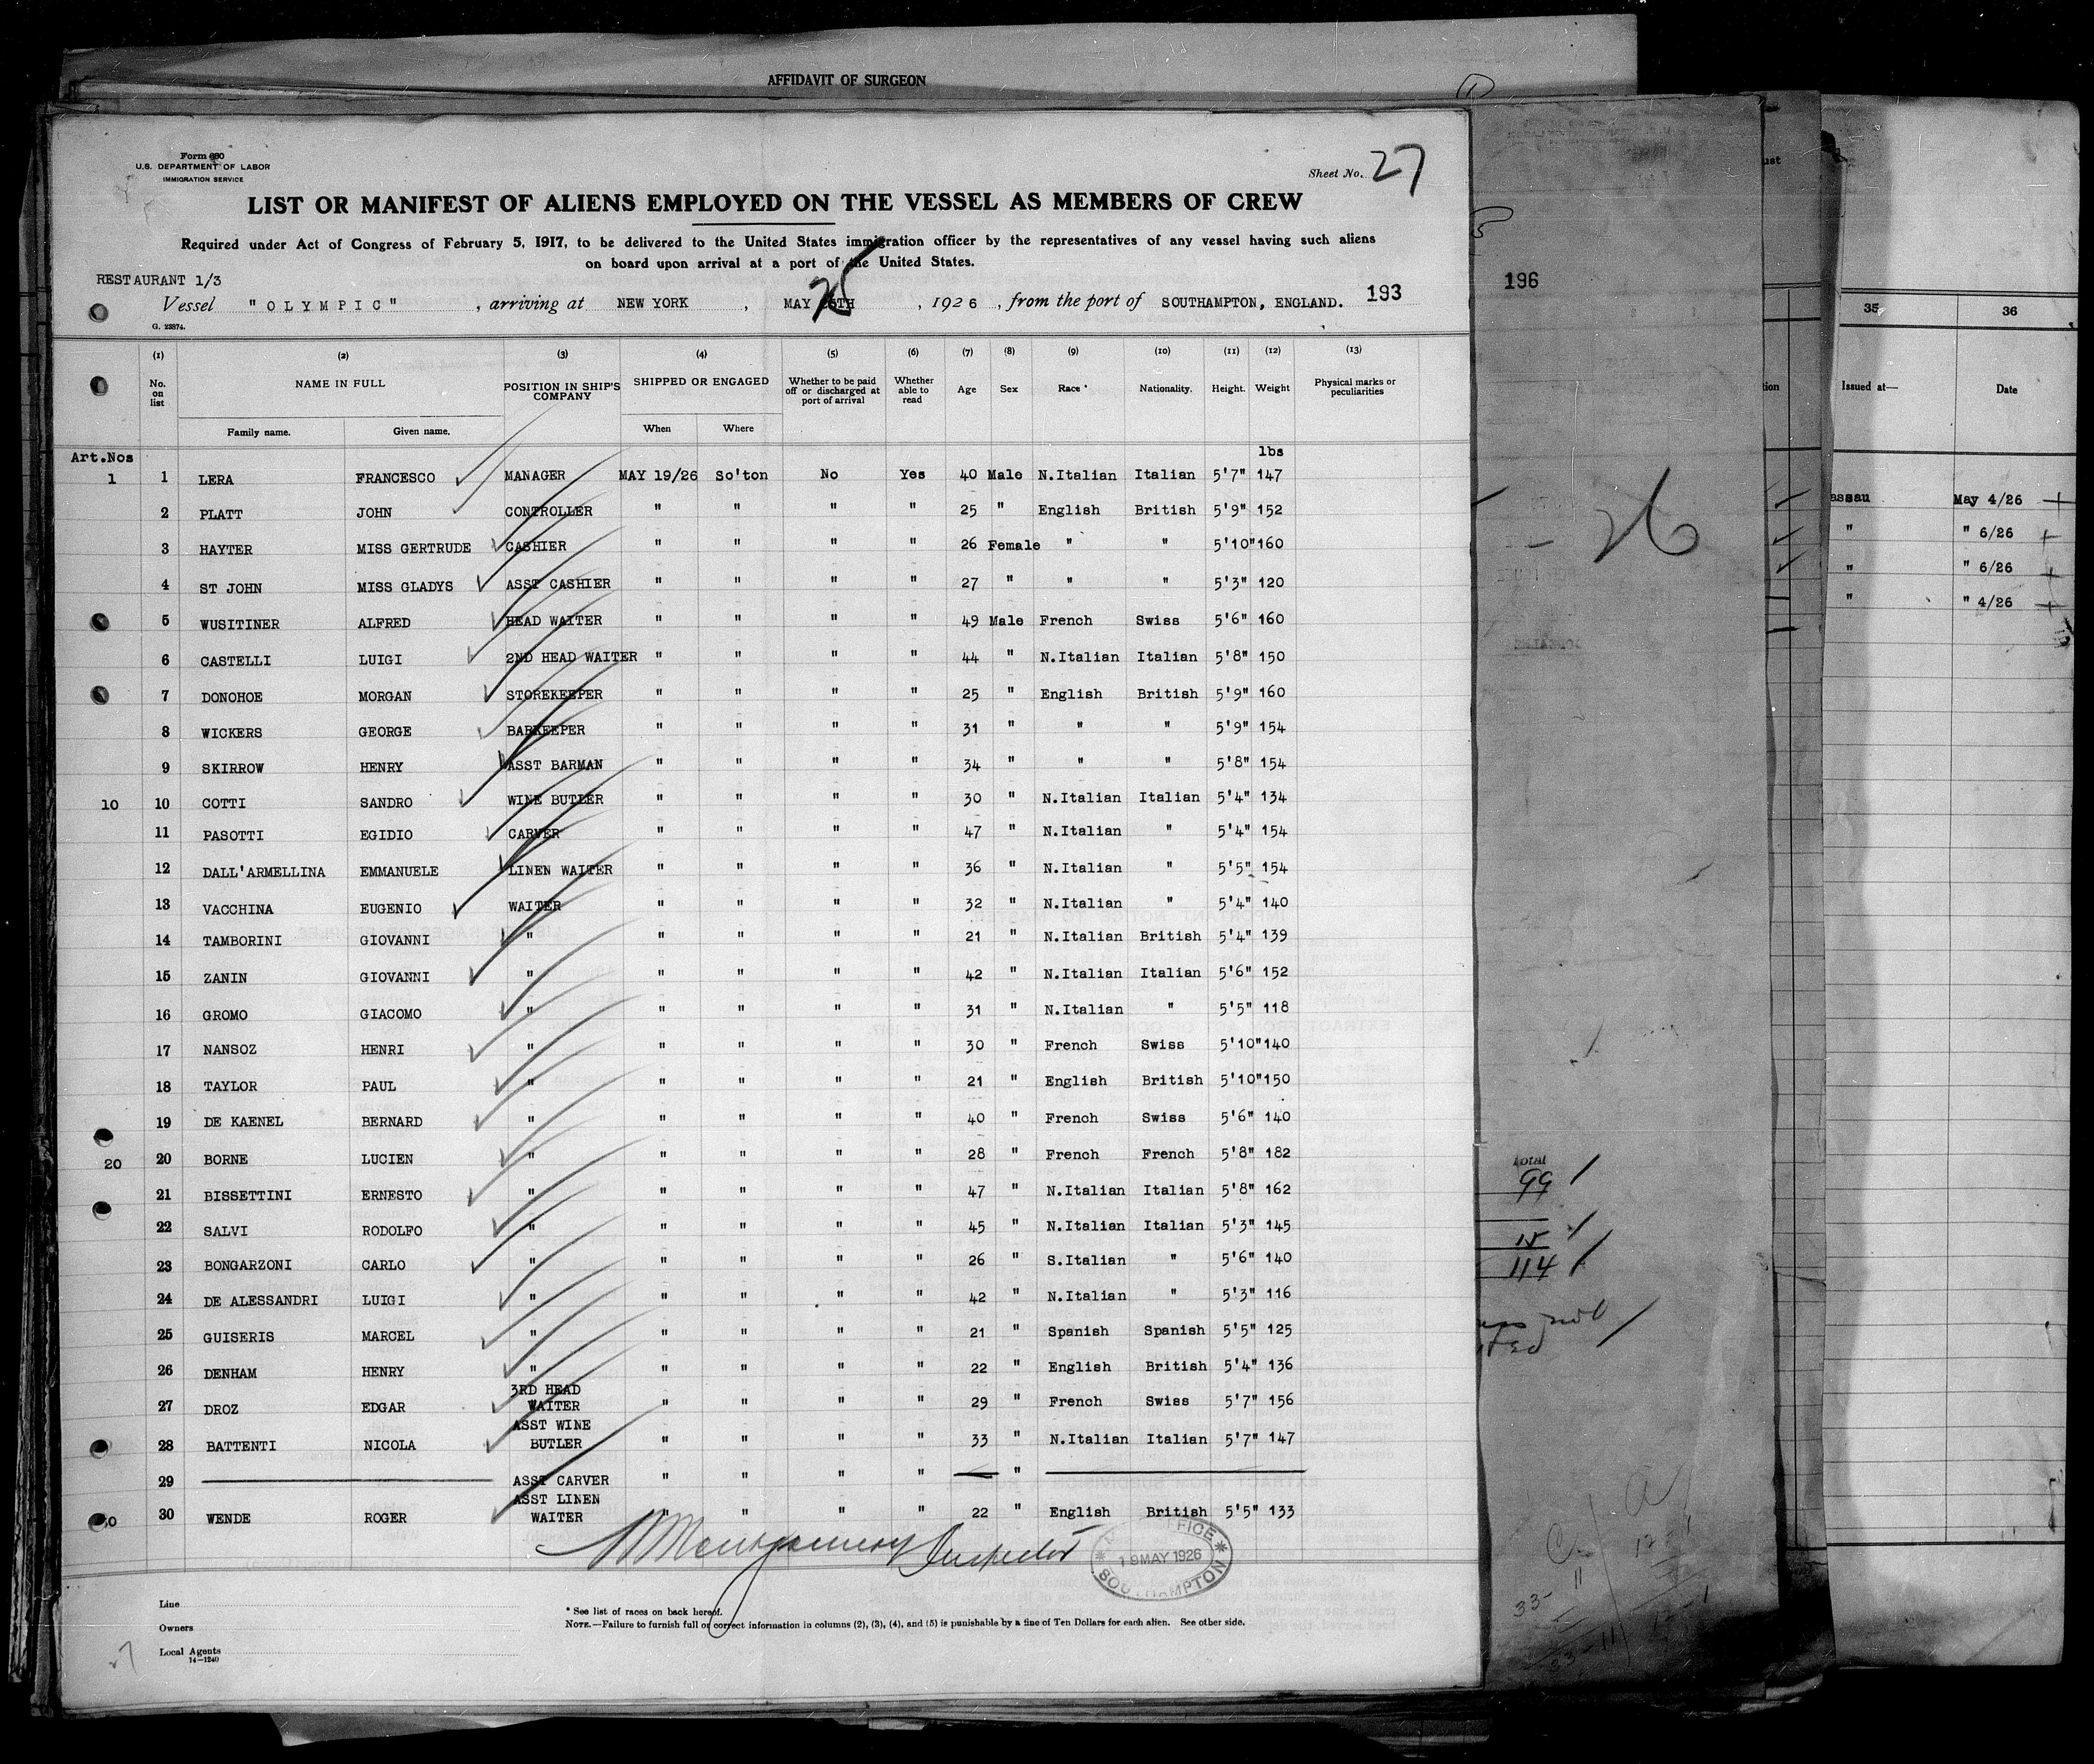 AFFIDAVIT OF SURGEON
Form 680
U.S. DEPARTMENT OF LABOR
IMMIGRATION SERVICE
Sheet No. 27
LIST OR MANIFEST OF ALIENS EMPLOYED ON THE VESSEL AS MEMBERS OF CREW
Required under Act of Congress of February 5, 1917, to be delivered to the United States immigration officer by the representatives of any vessel having such aliens
on board upon arrival at a port of the United States.
RESTAURANT 1/3
Vessel "OLYMPIC", arriving at NEW YORK, MAY 25TH, 1926, from the port of SOUTHAMPTON, ENGLAND. 193
G. 23874.
(1) (2) (3) (4) (5) (6) (7) (8) (9) (10) (11) (12) (13)
No. on list NAME IN FULL POSITION IN SHIP'S COMPANY SHIPPED OR ENGAGED Whether to be paid off or discharged at port of arrival Whether able to read Age Sex Race * Nationality. Height. Weight Physical marks or peculiarities
Family name. Given name. When Where
Art.Nos lbs
1 1 LERA FRANCESCO MANAGER MAY 19/26 So'ton No Yes 40 Male N.Italian Italian 5'7" 147
2 PLATT JOHN CONTROLLER " " " " 25 " English British 5'9" 152
3 HAYTER MISS GERTRUDE CASHIER " " " " 26 Female " " 5'10" 160
4 ST JOHN MISS GLADYS ASST CASHIER " " " " 27 " " " 5'3" 120
5 WUSITINER ALFRED HEAD WAITER " " " " 49 Male French Swiss 5'6" 160
6 CASTELLI LUIGI 2ND HEAD WAITER " " " " 44 " N.Italian Italian 5'8" 150
7 DONOHOE MORGAN STOREKEEPER " " " " 25 " English British 5'9" 160
8 WICKERS GEORGE BARKEEPER " " " " 31 " " " 5'9" 154
9 SKIRROW HENRY ASST BARMAN " " " " 34 " " " 5'8" 154
10 10 COTTI SANDRO WINE BUTLER " " " " 30 " N.Italian Italian 5'4" 134
11 PASOTTI EGIDIO CARVER " " " " 47 " N.Italian " 5'4" 154
12 DALL'ARMELLINA EMMANUELE LINEN WAITER " " " " 36 " N.Italian " 5'5" 154
13 VACCHINA EUGENIO WAITER " " " " 32 " N.Italian " 5'4" 140
14 TAMBORINI GIOVANNI " " " " " 21 " N.Italian British 5'4" 139
15 ZANIN GIOVANNI " " " " " 42 " N.Italian Italian 5'6" 152
16 GROMO GIACOMO " " " " " 31 " N.Italian " 5'5" 118
17 NANSOZ HENRI " " " " " 30 " French Swiss 5'10" 140
18 TAYLOR PAUL " " " " " 21 " English British 5'10" 150
19 DE KAENEL BERNARD " " " " " 40 " French Swiss 5'6" 140
20 20 BORNE LUCIEN " " " " " 28 " French French 5'8" 182
21 BISSETTINI ERNESTO " " " " " 47 " N.Italian Italian 5'8" 162
22 SALVI RODOLFO " " " " " 45 " N.Italian Italian 5'3" 145
23 BONGARZONI CARLO " " " " " 26 " S.Italian " 5'6" 140
24 DE ALESSANDRI LUIGI " " " " " 42 " N.Italian " 5'3" 116
25 GUISERIS MARCEL " " " " " 21 " Spanish Spanish 5'5" 125
26 DENHAM HENRY " " " " " 22 " English British 5'4" 136
27 DROZ EDGAR 3RD HEAD WAITER " " " " 29 " French Swiss 5'7" 156
28 BATTENTI NICOLA ASST WINE BUTLER " " " " 33 " N.Italian Italian 5'7" 147
29 ASST CARVER " " " " "
30 WENDE ROGER ASST LINEN WAITER " " " " 22 " English British 5'5" 133
Montgomery Inspector
OFFICE
19 MAY 1926
SOUTHAMPTON
Line
Owners
Local Agents
14-1240
* See list of races on back hereof.
NOTE.—Failure to furnish full or correct information in columns (2), (3), (4), and (5) is punishable by a fine of Ten Dollars for each alien. See other side.
27
196
26
Total
99
15
114
35 36
Issued at— Date
May 4/26
" " 6/26
" " 6/26
" " 4/26